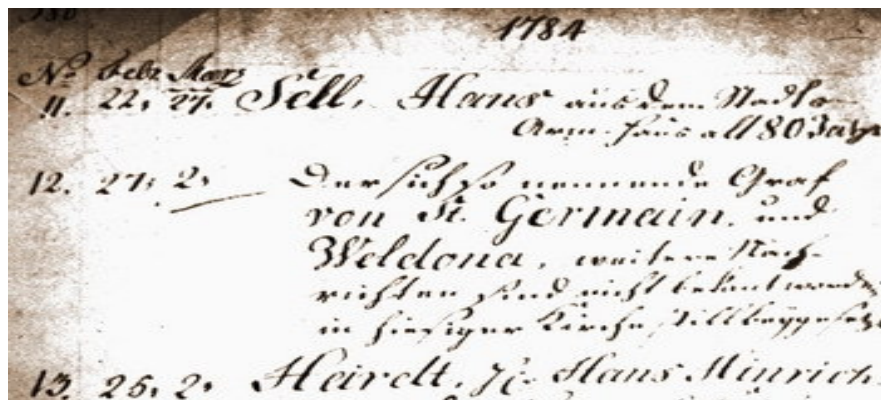 1784
No Febr Marz
11. 22. 27. Söll, Hans aus dem Stadts-
Arm-Haus alt 80 Jahr
12. 27. 2. Der sich so nennende Graf
von St. Germain und
Weldona, weitere Nach-
richten sind nicht bekant worden
in hiesiger Kirche still beygesetzt
13. 25. 2. Heirdt, Hans Hinrich